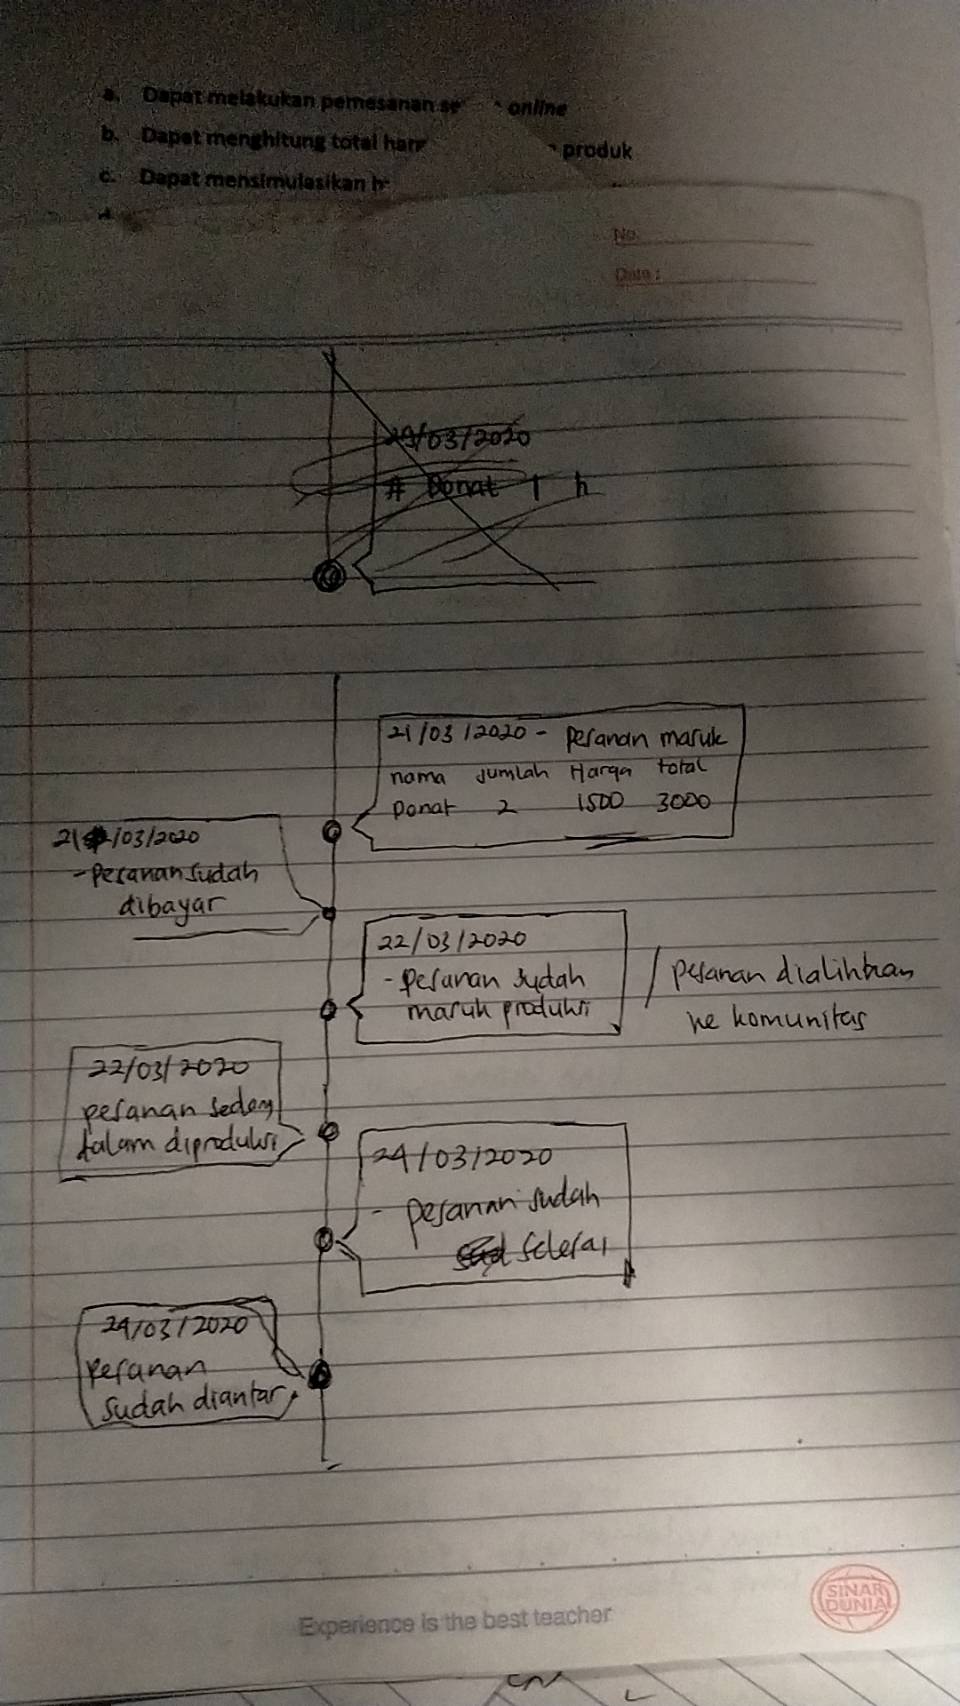 a. Dapat melakukan pemesanan se online
b. Dapat menghitung total har produk
c. Dapat mensimulasikan h
No.
Date :
29/03/2020
# Donat 1 h
21/03/2020 - Pesanan masuk
nama Jumlah Harga total
Donat 2 1500 3000
21/03/2020
- Pesanan sudah
dibayar
22/03/2020
- Pesanan sudah
masuk produksi
/ Pesanan dialihkan
ke komunitas
22/03/2020
pesanan sedang
dalam diproduksi
24/03/2020
- Pesanan sudah
selesai
24/03/2020
Pesanan
sudah diantar
SINAR
DUNIA
Experience is the best teacher